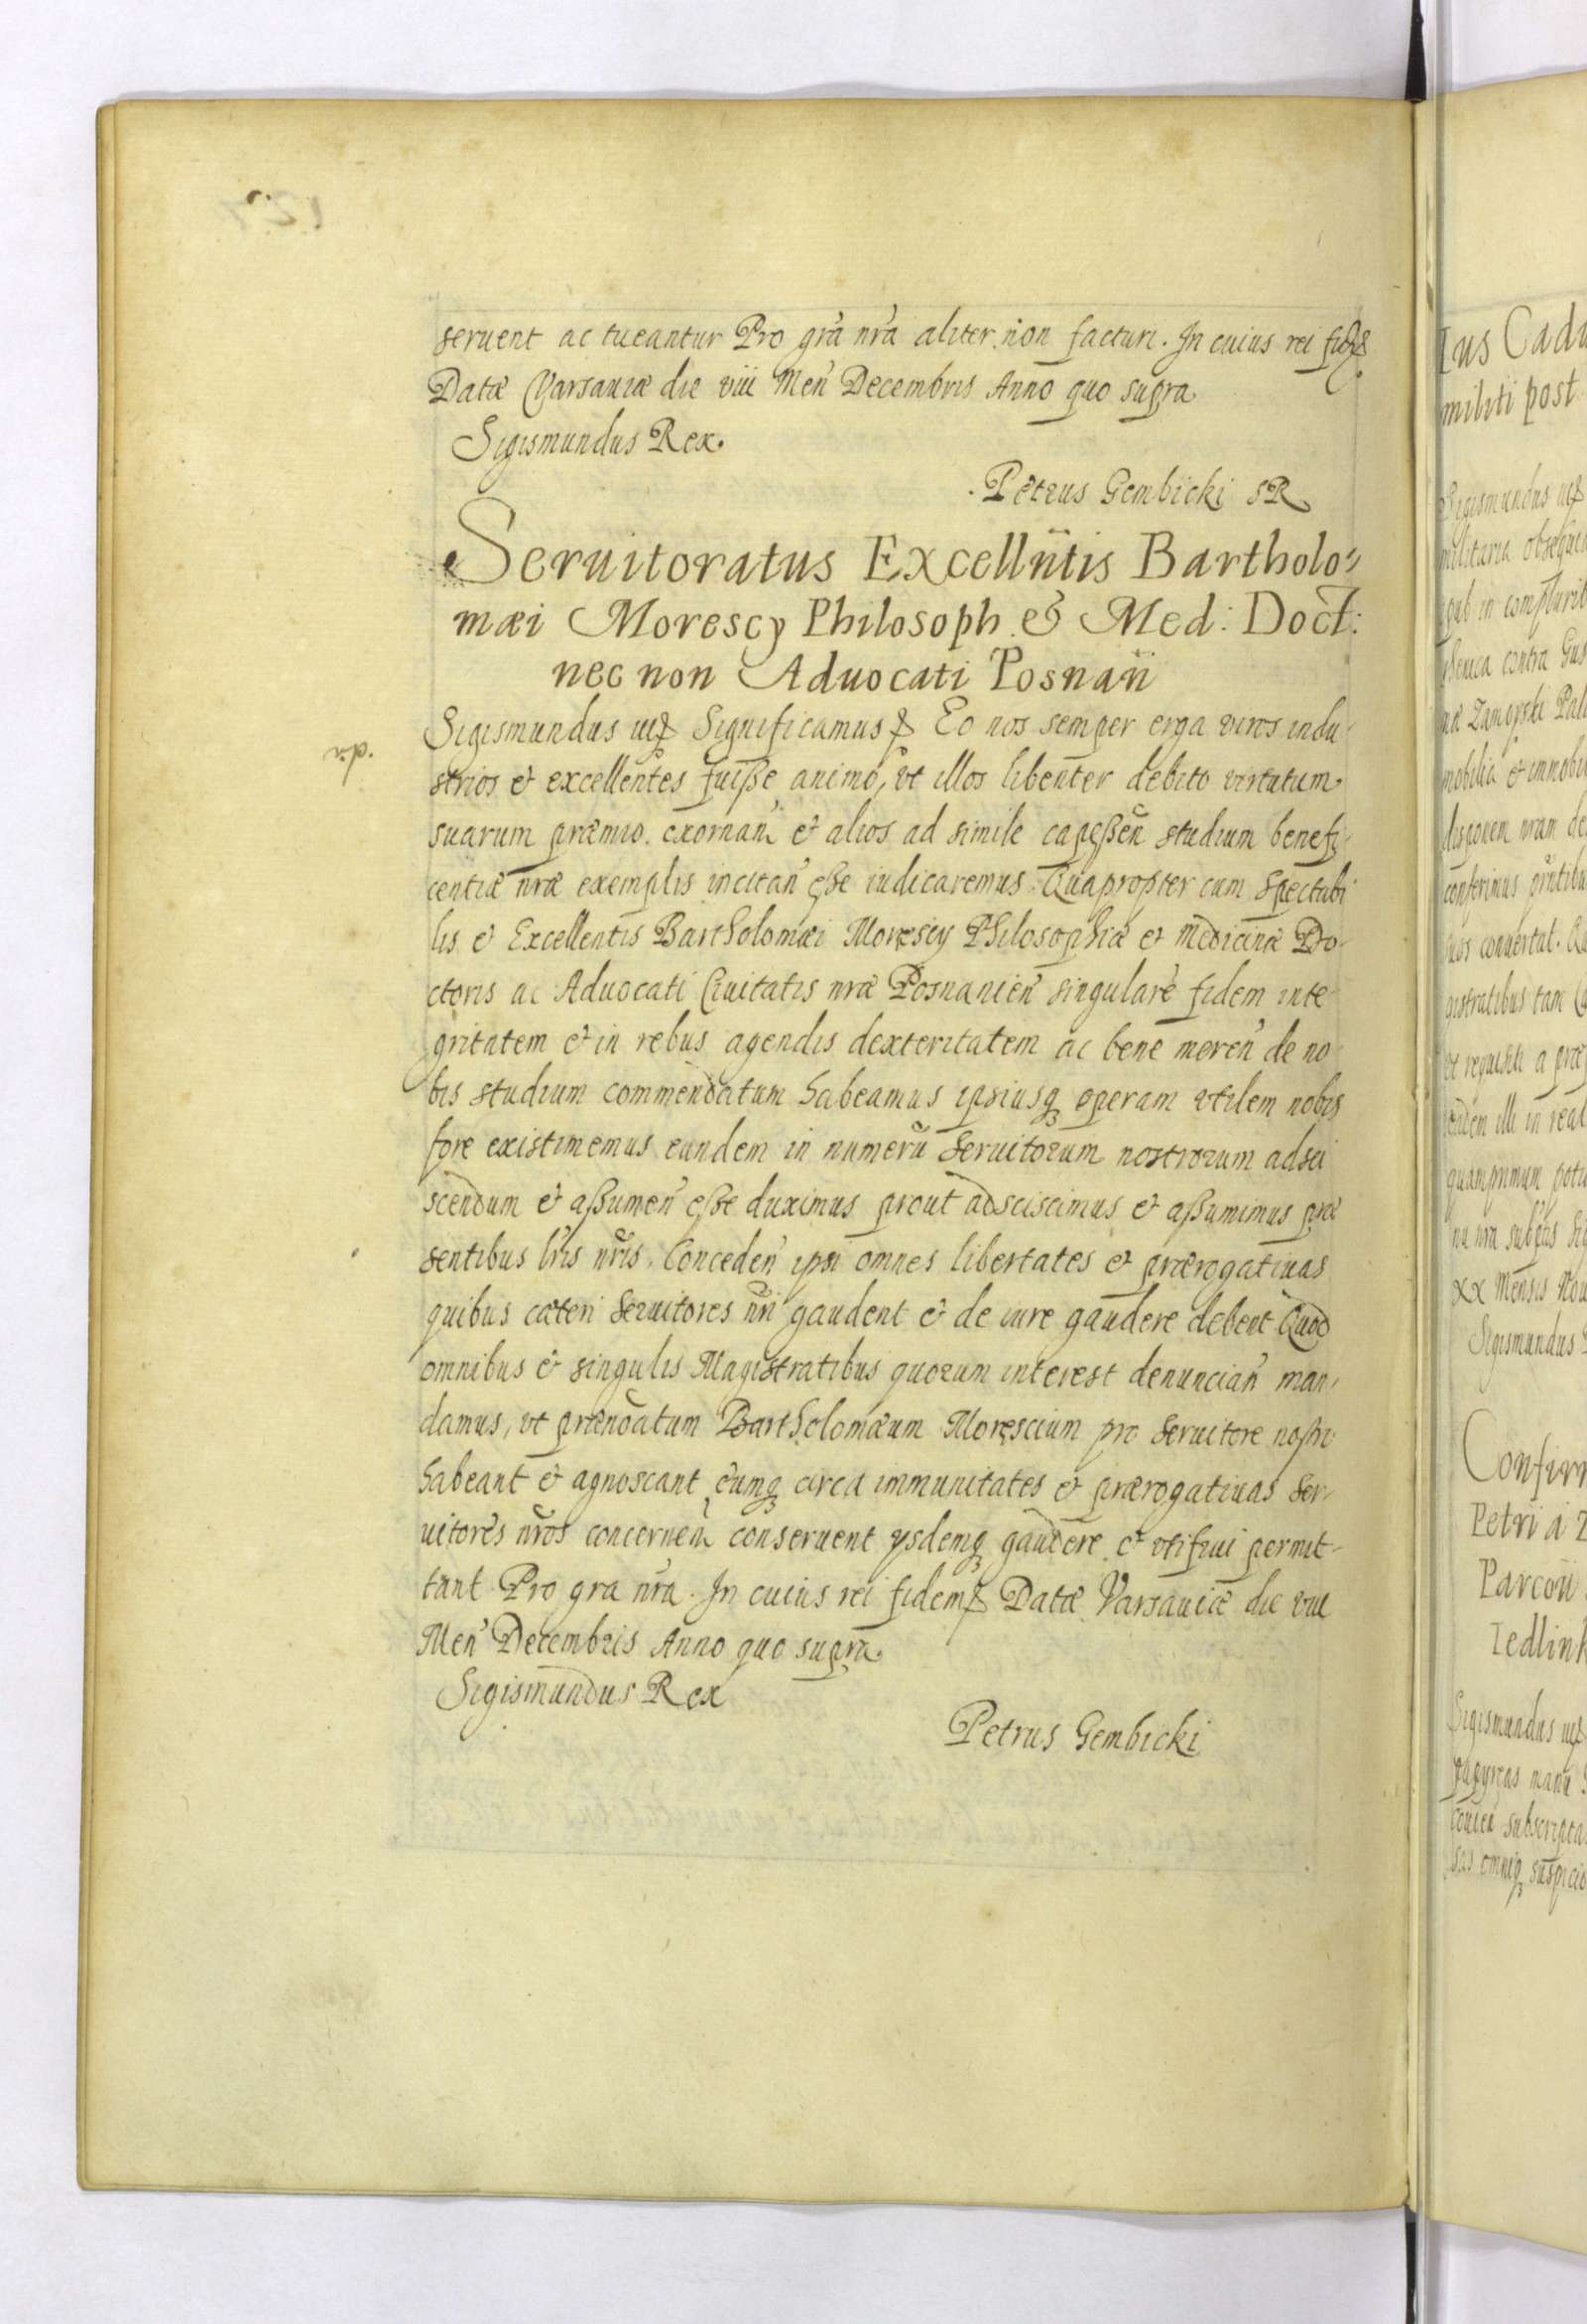 seruent ac tueantur Pro grã nrã aliter non facturi. In cuius rei fid
Datæ Varsauiæ die viii Men̄ Decembris Anno quo supra
Sigismundus Rex.
Petrus Gembicki SR
Seruitoratus Excellñtis Bartholo⸗
mæi Morescy Philosoph. & Med: Doct:
nec non Aduocati Posnan̄
Sigismundus Significamus Eo nos semper erga viros indu-
strios et excellentes fuiße animo, vt illos libenter debito virtutum
suarum præmio exornan̄ et alios ad simile capeßen̄ studium benefi-
centiæ nr̄æ exemplis incitan̄ eße iudicaremus. Quapropter cum Spectabi
lis et Excellentis Bartholomæi Morescy Philosophiæ et Medicinæ Do-
ctoris ac Aduocati Ciuitatis nr̄æ Posnanien̄ singularē fidem inte-
gritatem et in rebus agendis dexteritatem ac bene meren̄ de no-
bis studium commendatum habeamus ipsiusq operam vtilem nobis
fore existimemus eundem in numerū Seruitorum nostrorum adsci
scendum et aßumen̄ eße duximus prout adsciscimus et aßumimus præ
sentibus lr̄is nr̄is. Conceden̄ ipsi omnes libertates et prærogatiuas
quibus cæteri Seruitores nr̄i gaudent et de iure gaudere debent Quod
omnibus et singulis Magistratibus quorum interest denuncian̄ man-
damus, vt prænoatum Bartholomæum Morescium pro Seruitore nostro
habeant et agnoscant eumq circa immunitates et prærogatiuas Ser-
uitores nr̄os concernen̄ conseruent ysdemq gaudere et vtifrui permit-
tant Pro gra nr̄a. In cuius rei fidem Datæ Varsauiæ die viii
Men̄ Decembris Anno quo supra.
Sigismundus Rex
Petrus Gembicki
Ius Cadu
militi post
Sigismundus
militaria obsequia
contra Gus
Zamoyski Pala
mobilia et immobi
conferimus
suos conuertat.
gistratibus tam
eidem illi in real
quamprimum
xx Mensis Nou
Sigismundus
Confirm
Petri a Z
Parcou
Iedlink
Sigismundus
papyreas manu
subscripta
omniq suspicio